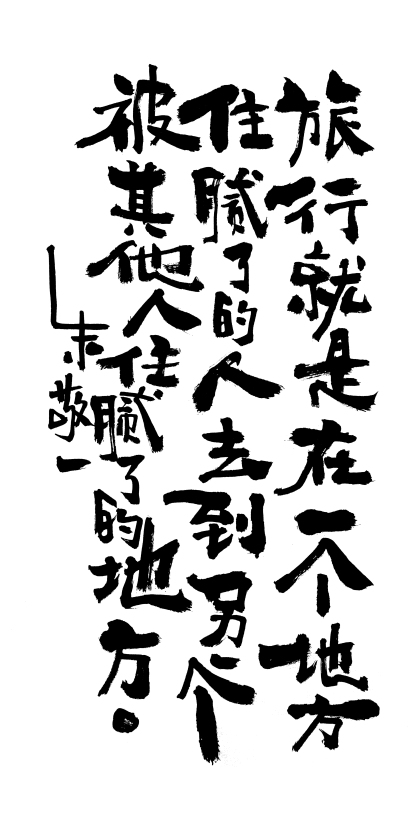 旅行就是在一个地方
住腻了的人去到另个
被其他人住腻了的地方。
朱敬一